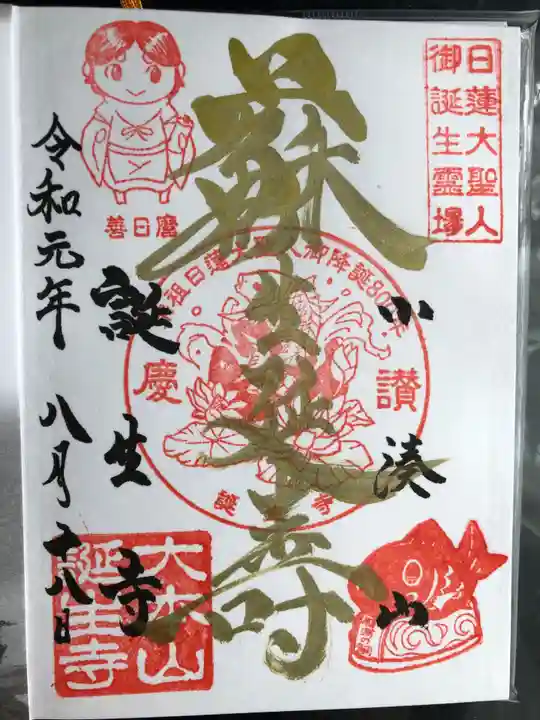 日蓮大聖人
御誕生霊場
小湊山
蘇生延寿
誕生寺
令和元年 八月十八日
善日麿
祖日蓮大聖人御降誕80
慶讃
誕
大本山
誕生寺